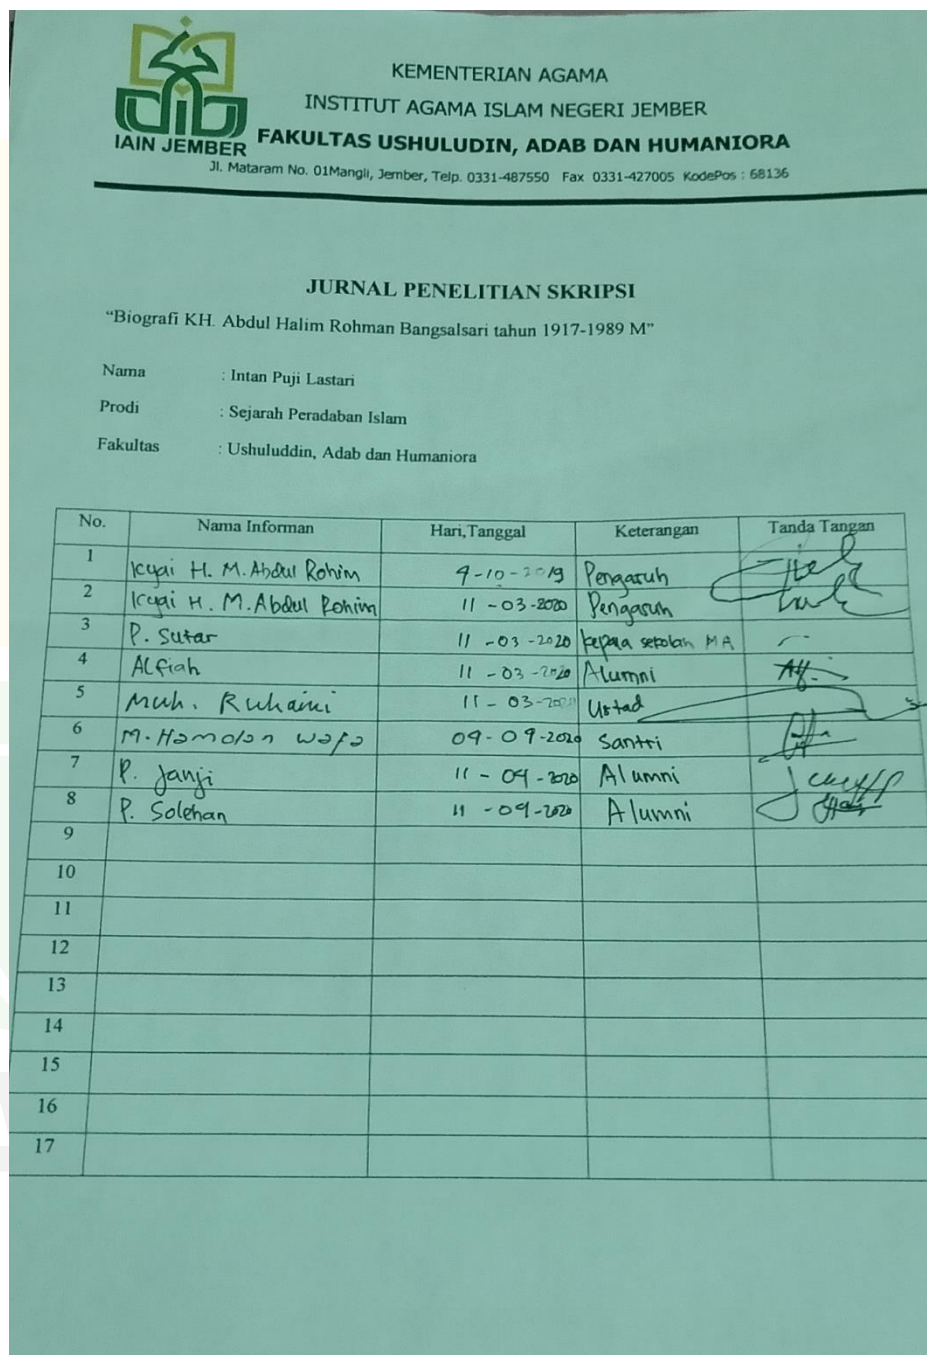 KEMENTERIAN AGAMA
INSTITUT AGAMA ISLAM NEGERI JEMBER
FAKULTAS USHULUDIN, ADAB DAN HUMANIORA
IAIN JEMBER
Jl. Mataram No. 01Mangli, Jember, Telp. 0331-487550 Fax 0331-427005 KodePos : 68136
JURNAL PENELITIAN SKRIPSI
“Biografi KH. Abdul Halim Rohman Bangsalsari tahun 1917-1989 M”
Nama : Intan Puji Lastari
Prodi : Sejarah Peradaban Islam
Fakultas : Ushuluddin, Adab dan Humaniora
No. Nama Informan Hari,Tanggal Keterangan Tanda Tangan
1 Kyai H. M. Abdul Rohim 9-10-2019 Pengasuh
2 Kyai H. M. Abdul Rohim 11-03-2020 Pengasuh
3 P. Sutar 11-03-2020 kepala sekolah MA
4 Alfiah 11-03-2020 Alumni
5 Muh. Ruhaini 11-03-2020 Ustad
6 M. Hamdan Wafa 09-09-2020 Santri
7 P. Janji 11-09-2020 Alumni
8 P. Solehan 11-09-2020 Alumni
9
10
11
12
13
14
15
16
17